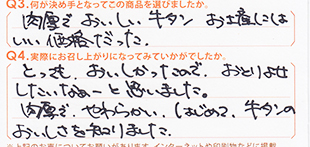 Q3.何が決め手となってこの商品を選びましたか。
肉厚で おいしい 牛タン お土産には
いい価格だった。
Q4.実際にお召し上がりになってみていかがでしたか。
とっても、おいしかったので、おとりよせ
したいなぁーと思いました。
肉厚で、やわらかい、はじめて、牛タンの
おいしさを知りました。